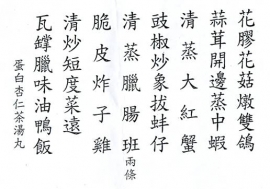 花膠花菇燉雙鴿
蒜茸開邊蒸中蝦
清蒸大紅蟹
豉椒炒象拔蚌仔
清蒸臘腸班兩條
脆皮炸子雞
清炒短度菜遠
瓦罉臘味油鴨飯
蛋白杏仁茶湯丸